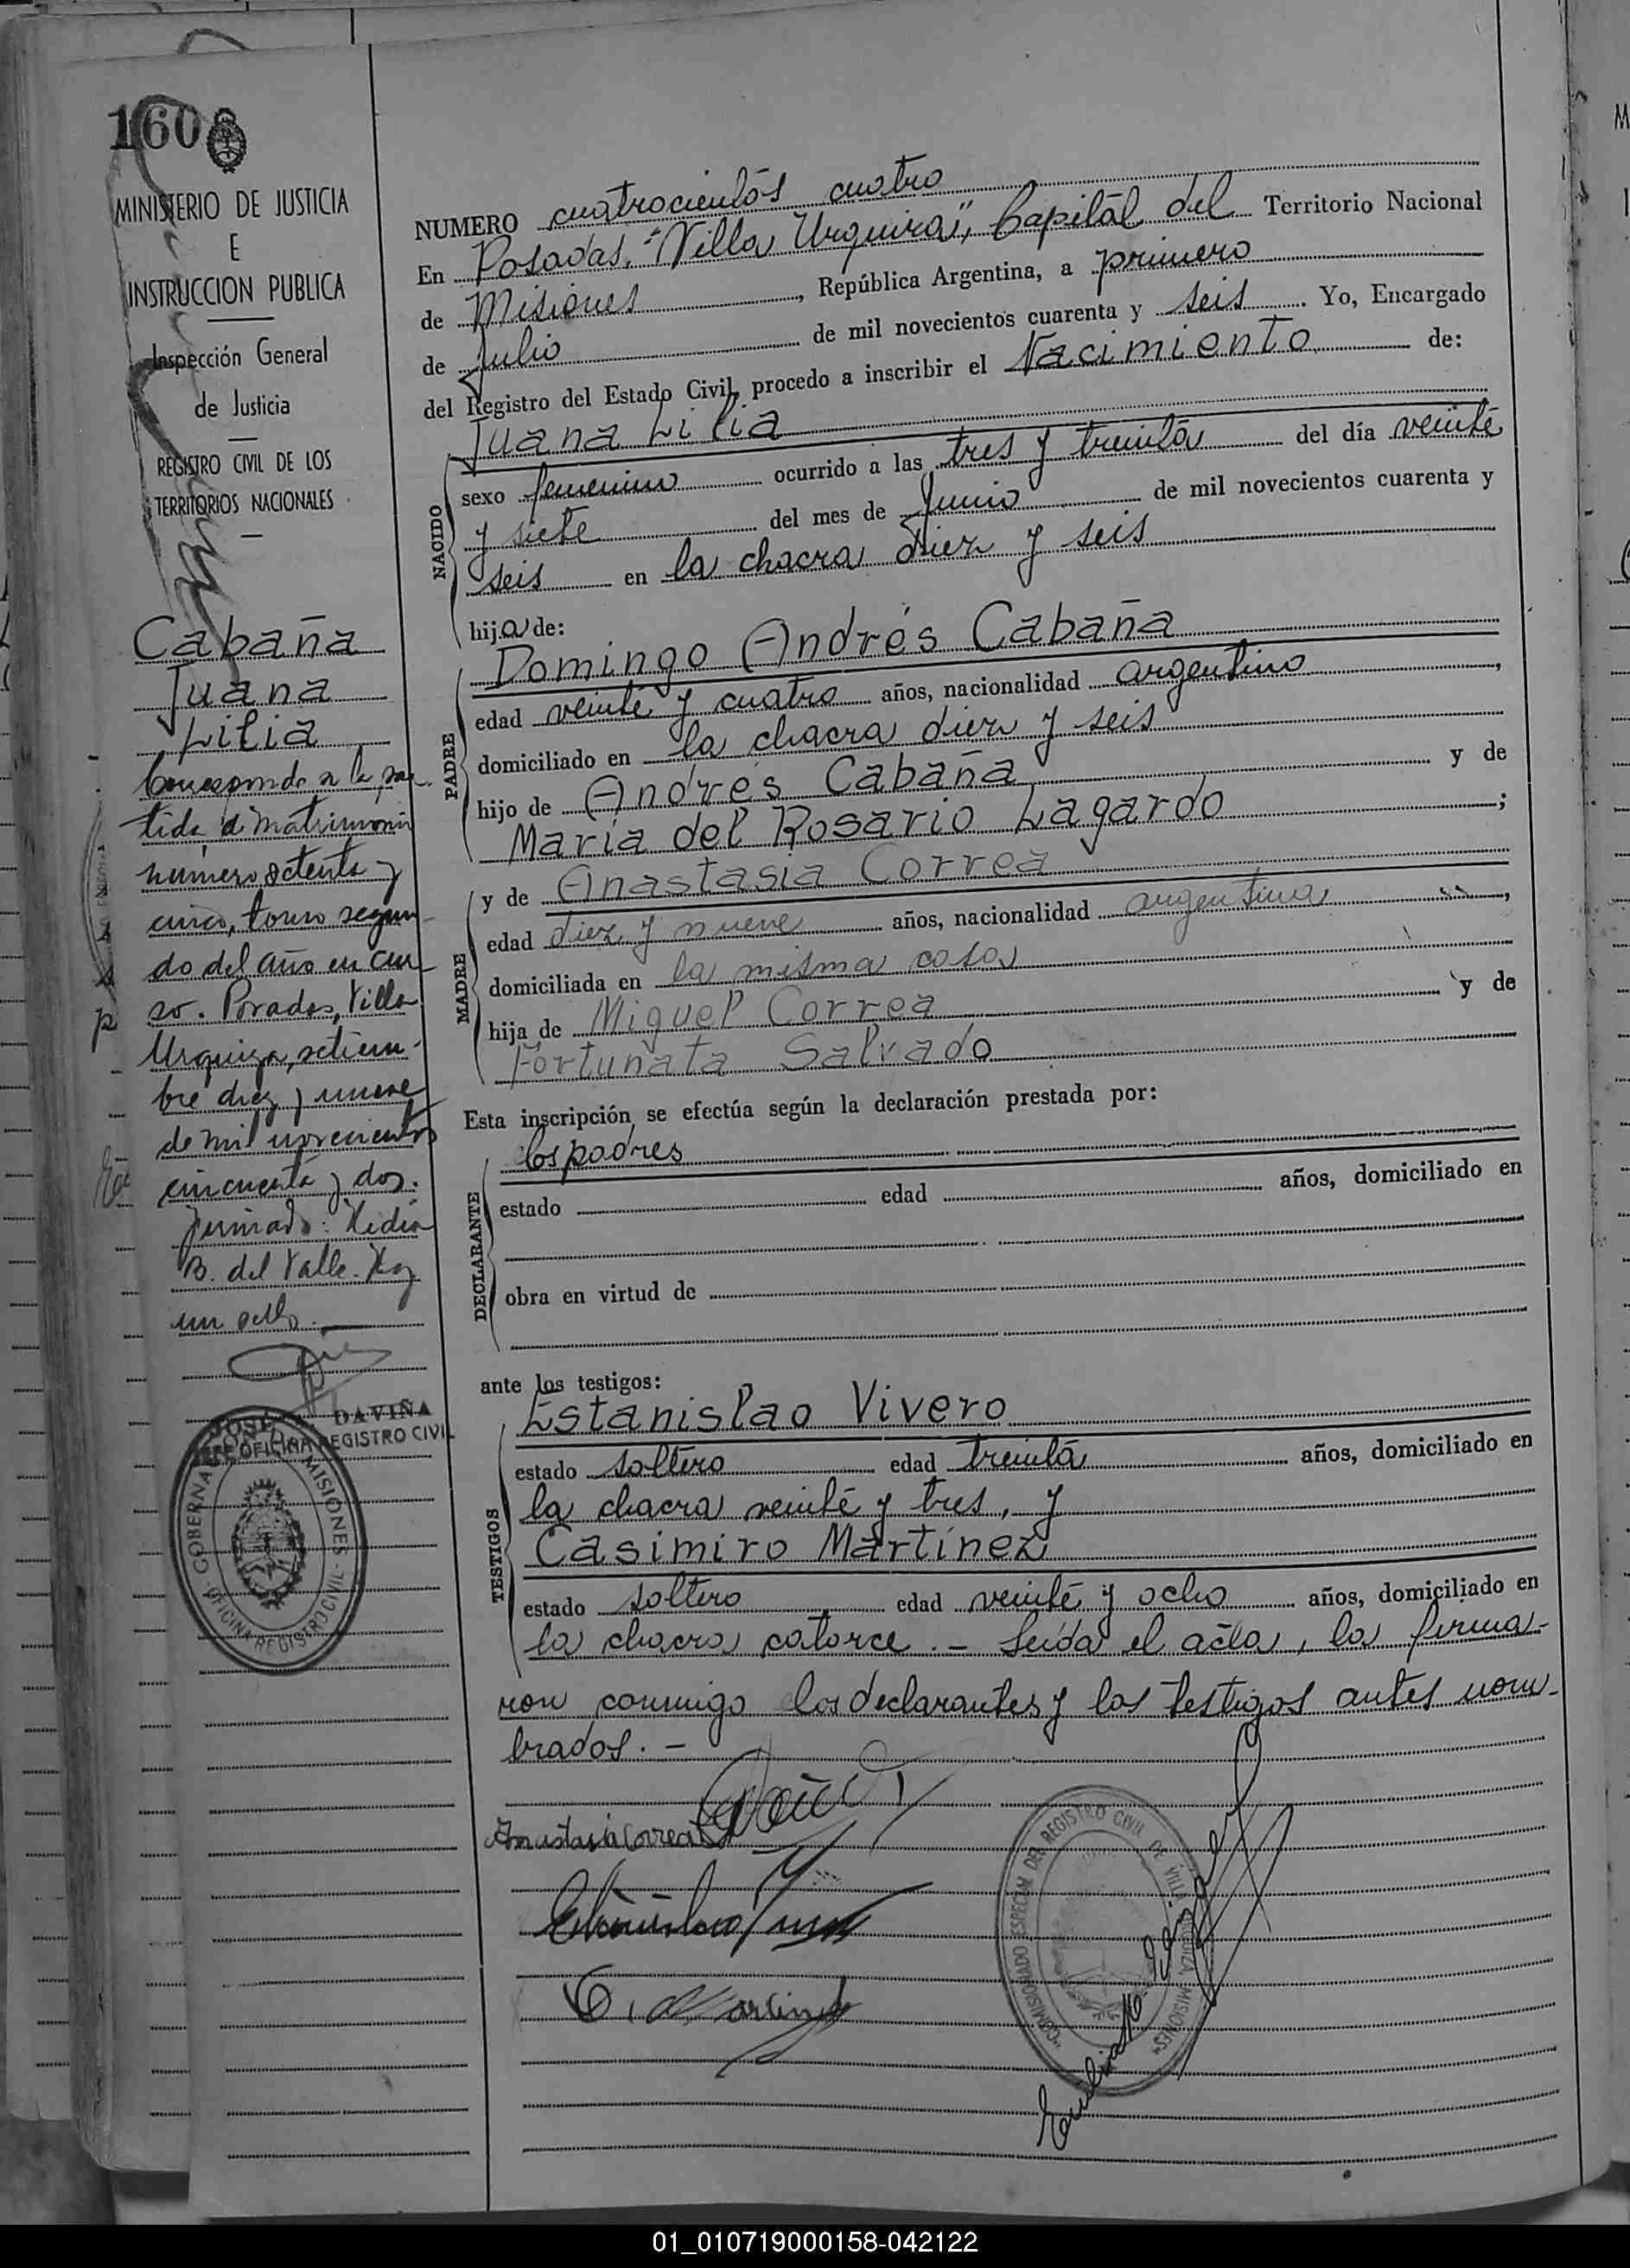 160
MINISTERIO DE JUSTICIA
E
INSTRUCCION PUBLICA
Inspección General
de Justicia
REGISTRO CIVIL DE LOS
TERRITORIOS NACIONALES
Cabaña
Juana
Lilia
Corresponde a la par
tida de matrimonio
número setenta y
cinco, tomo segun-
do del año en cur-
so. Posadas, Villa
Urquiza, setiem-
bre diez y nueve
de mil novecientos
cincuenta y dos.
Firmado: Lidia
B. del Valle. Hay
un sello.
JOSE DAVIÑA
JEFE OFICINA REGISTRO CIVIL
GOBERNA MISIONES
OFICINA REGISTRO CIVIL
NUMERO cuatrocientos cuatro
En Posadas, "Villa Urquiza", Capital del Territorio Nacional
de Misiones, República Argentina, a primero
de Julio de mil novecientos cuarenta y seis. Yo, Encargado
del Registro del Estado Civil, procedo a inscribir el Nacimiento de:
NACIDO
Juana Lilia
sexo femenino ocurrido a las tres y treinta del día veinte
y siete del mes de Junio de mil novecientos cuarenta y
seis en la chacra diez y seis
hija de:
PADRE
Domingo Andrés Cabaña
edad veinte y cuatro años, nacionalidad argentino,
domiciliado en la chacra diez y seis
hijo de Andrés Cabaña y de
María del Rosario Lagardo;
MADRE
y de Anastasia Correa
edad diez y nueve años, nacionalidad argentina,
domiciliada en la misma casa
hija de Miguel Correa y de
Fortunata Salvado
Esta inscripción se efectúa según la declaración prestada por:
DECLARANTE
los padres
estado edad años, domiciliado en
obra en virtud de
ante los testigos:
TESTIGOS
Estanislao Vivero
estado soltero edad treinta años, domiciliado en
la chacra veinte y tres, y
Casimiro Martínez
estado soltero edad veinte y ocho años, domiciliado en
la chacra catorce. — Leída el acta, la firma-
ron conmigo los declarantes y los testigos antes nom-
brados. —
Anastasia Correa
C. Martinez
COMISIONADO ESPECIAL DEL REGISTRO CIVIL DE VILLA URQUIZA, MISIONES
01_010719000158-042122